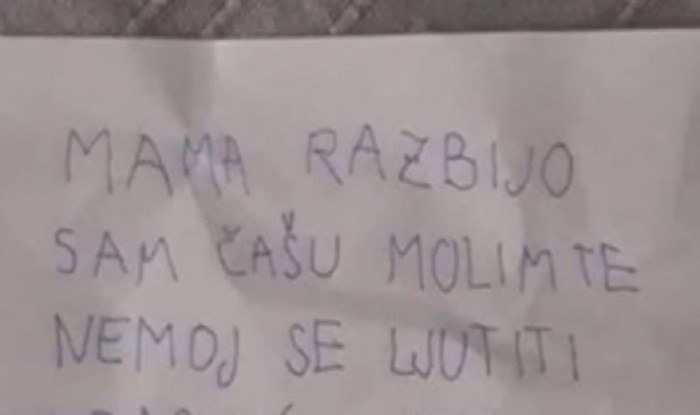 MAMA RAZBIJO
SAM ČAŠU MOLIM TE
NEMOJ SE LJUTITI